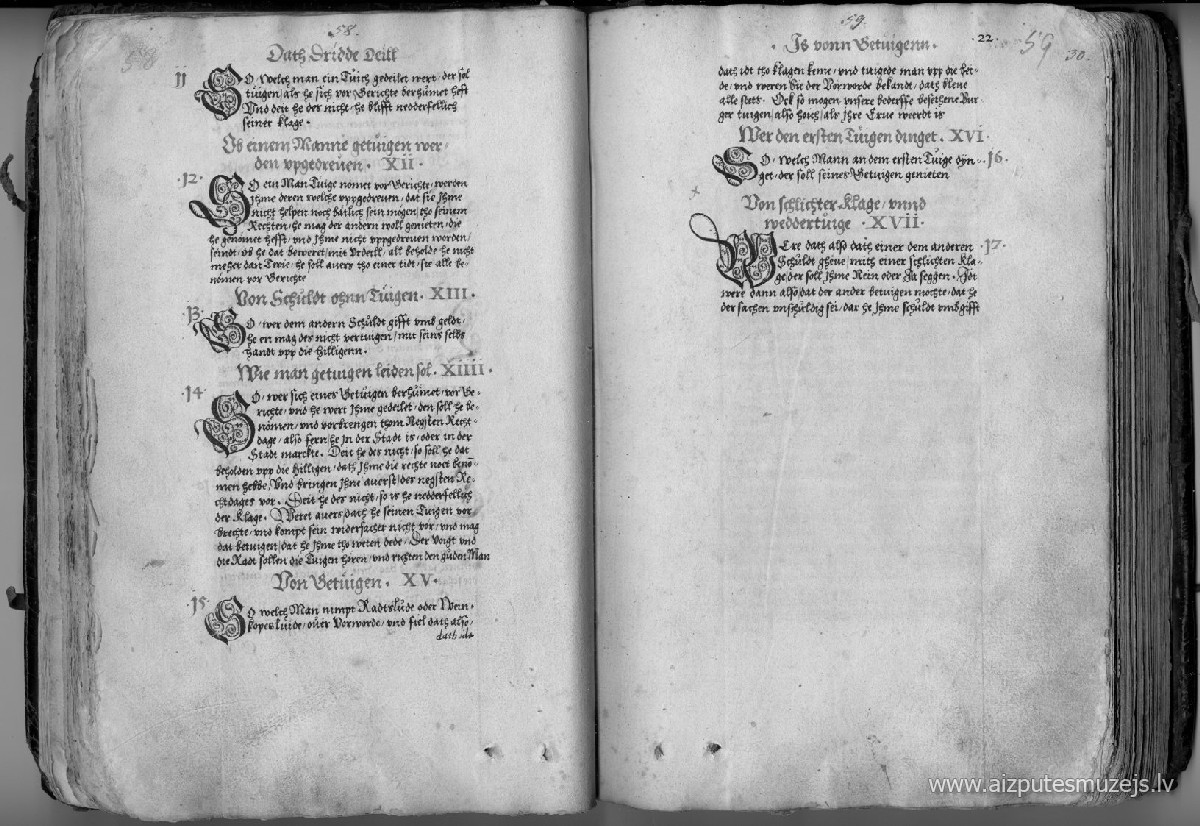 58.
58
Dath Dridde Deill
11
SO welch man ein Tuich gedeilet wert, der sol
tuigen, als he sich vor Gerichte berhümet hefft
Vnd deit he des nicht, he blifft nedderfellich
seiner klage.
Ob einem Manne getuigen wer-
den vpgedreuen. XII.
12
SO ein Man Tuige nömet vor Gerichte, werden
ihme deren welche vpgedreuen, dat sie Ihme
nicht helpen noch sein mögen, tho seinem
Rechten, he mag der andern woll genieten, die
he genömet hefft, vnd Ihme nicht vpgedreuen worden,
seindt, vs he dat beweret, mit Vrdeill, alß beholde he nicht
meher dan Twie, he sell auers tho einer tidt, sie alle be-
nömen vor Gerichte
Von Schuldt ohnn Tuigen. XIII.
13
SO wer dem andern Schuldt gifft vmb geldt,
he en mag des nicht vertuigen, mit seins selbs
handt vpp die Hilligenn.
Wie man getuigen leiden sol. XIIII.
14
SO, wer sich eines Getuigen berhümet, vor Ge-
richte, vnd he wert Ihme gedeilet, den soll he be-
nömen, vnd vorbrengen thom Negsten Recht-
dage, also fern he In der Stadt is, oder in der
Stadt marcke. Deit he des nicht, so soll he dat
beholden vpp die Hilligen, dath Ihme die rechte noet benö-
men hebbe, Vnd bringen Ihme auerst, des negsten Re-
chtdages vor. Deit he des nicht, so is he nedderfellich
der Klage. Weret auers, dath he seinen Tuigen vor
brechte, vnd kompt sein widersacher nicht vor, vnd mag
dat betuigen, dat he Ihme tho weten dede, Der Voigt vnd
die Radt sollen die Tuigen hören, vnd richten den guden Man
Von Getuigen. XV.
15
SO welch Man nimpt Radtslude oder Wein-
kopeslüide, ouer Vorworde, vnd fiel dath also,
dath idt
59.
Is vonn Getuigenn.
22.
59
30.
dath idt tho klagen keme, vnd tuigede man vpp die bei-
de, vnd weren die der Vorworde bekandt, dath bleue
alle stett. Ock so mogen vnsere bederffe besethene Bur
ger tuigen, also hoich, als Ihre Erue weerdt is
Wer den ersten Tuigen dinget. XVI.
16.
SO, welch Mann an dem ersten Tuige dyn-
get, der soll seines Getuigen genieten
Von schlichter Klage, vnnd
weddertuige. XVII.
17.
WEre dath also dath einer dem anderen
Schuldt gheue mith einer schlichten Kla-
ge der soll Ihme Nein oder Ja seggen. Idt
were dann also, dat der ander betuigen mochte, dat he
der sachen vnschuldig sei, dar he Ihme schuldt vmb gifft
www.aizputesmuzejs.lv